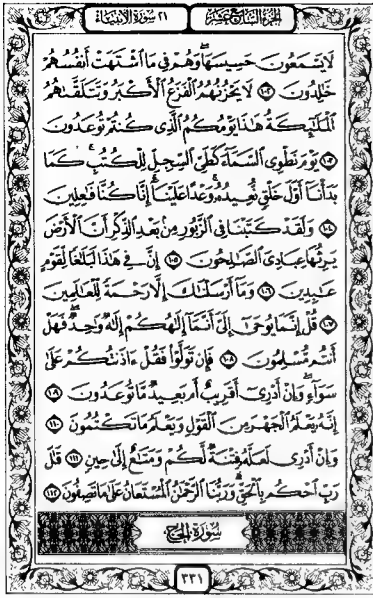 الجزء السابع عشر ٢١ سورة الأنبياء
لَا يَسْمَعُونَ حَسِيسَهَا وَهُمْ فِي مَا اشْتَهَتْ أَنفُسُهُمْ
خَالِدُونَ ١٠٢ لَا يَحْزُنُهُمُ الْفَزَعُ الْأَكْبَرُ وَتَتَلَقَّاهُمُ
الْمَلَائِكَةُ هَٰذَا يَوْمُكُمُ الَّذِي كُنتُمْ تُوعَدُونَ
١٠٣ يَوْمَ نَطْوِي السَّمَاءَ كَطَيِّ السِّجِلِّ لِلْكُتُبِ كَمَا
بَدَأْنَا أَوَّلَ خَلْقٍ نُّعِيدُهُ وَعْدًا عَلَيْنَا إِنَّا كُنَّا فَاعِلِينَ
١٠٤ وَلَقَدْ كَتَبْنَا فِي الزَّبُورِ مِن بَعْدِ الذِّكْرِ أَنَّ الْأَرْضَ
يَرِثُهَا عِبَادِيَ الصَّالِحُونَ ١٠٥ إِنَّ فِي هَٰذَا لَبَلَاغًا لِّقَوْمٍ
عَابِدِينَ ١٠٦ وَمَا أَرْسَلْنَاكَ إِلَّا رَحْمَةً لِّلْعَالَمِينَ
١٠٧ قُلْ إِنَّمَا يُوحَىٰ إِلَيَّ أَنَّمَا إِلَٰهُكُمْ إِلَٰهٌ وَاحِدٌ فَهَلْ
أَنتُم مُّسْلِمُونَ ١٠٨ فَإِن تَوَلَّوْا فَقُلْ ءَاذَنتُكُمْ عَلَىٰ
سَوَاءٍ وَإِنْ أَدْرِي أَقَرِيبٌ أَم بَعِيدٌ مَّا تُوعَدُونَ ١٠٩
إِنَّهُ يَعْلَمُ الْجَهْرَ مِنَ الْقَوْلِ وَيَعْلَمُ مَا تَكْتُمُونَ ١١٠
وَإِنْ أَدْرِي لَعَلَّهُ فِتْنَةٌ لَّكُمْ وَمَتَاعٌ إِلَىٰ حِينٍ ١١١ قَالَ
رَبِّ احْكُم بِالْحَقِّ وَرَبُّنَا الرَّحْمَٰنُ الْمُسْتَعَانُ عَلَىٰ مَا تَصِفُونَ ١١٢
سُورَةُ الحَج
٣٣١